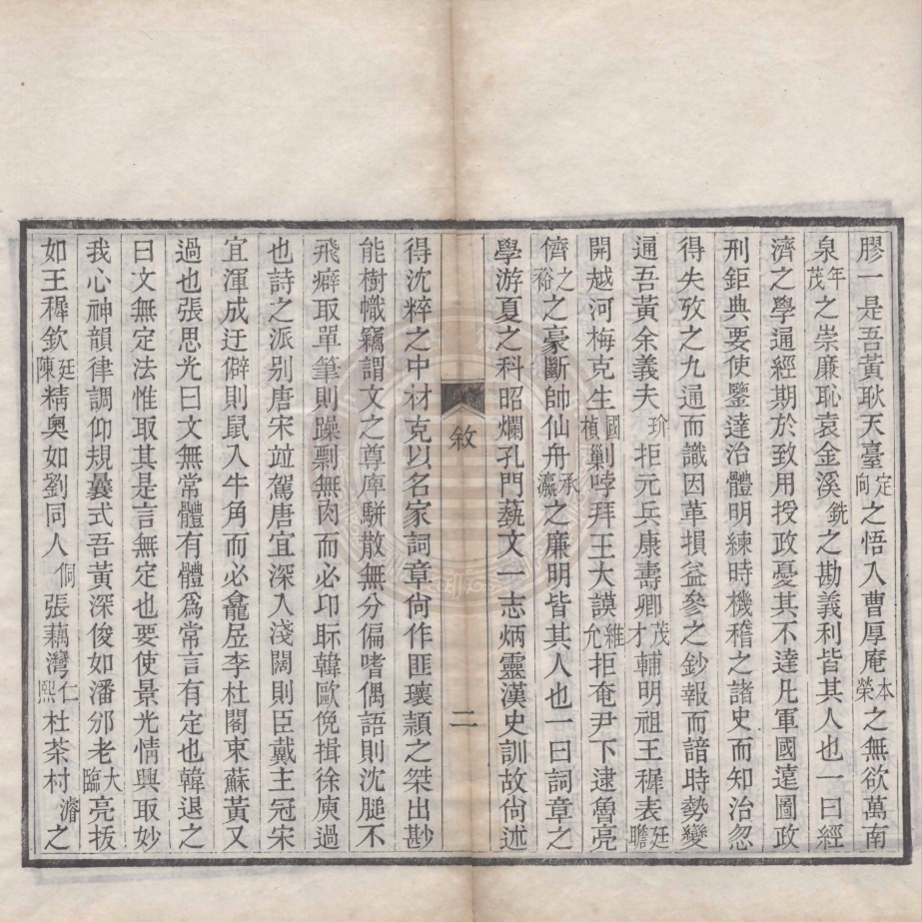 膠一是吾黃耿天臺定向之悟入曹厚庵本榮之無欲萬南
泉年茂之崇廉恥袁金溪銑之勘義利皆其人也一曰經
濟之學通經期於致用授政憂其不達凡軍國遠圖政
刑鉅典要使鑒達治體明練時機稽之諸史而知治忽
得失攷之九通而識因革損益參之鈔報而諳時勢變
通吾黃余義夫玠拒元兵康壽卿茂才輔明祖王穉表廷瞻
開越河梅克生國楨剿哱拜王大謨維允拒奄尹下逮魯亮
儕之裕之豪斷帥仙舟承瀛之廉明皆其人也一曰詞章之
學游夏之科昭爛孔門蓺文一志炳靈漢史訓故尙述
敘
二
得沈粹之中材克以名家詞章尙作匪瓌頴之桀出尠
能樹幟竊謂文之尊庳駢散無分偏嗜偶語則沈膇不
飛癖取單筆則躁剽無肉而必卬眎韓歐俛揖徐庾過
也詩之派别唐宋竝駕唐宜深入淺闊則臣戴主冠宋
宜渾成迂僻則鼠入牛角而必龕㞐李杜閣束蘇黃又
過也張思光曰文無常體有體爲常言有定也韓退之
曰文無定法惟取其是言無定也要使景光情興取妙
我心神韻律調仰規曩式吾黃深俊如潘邠老大臨亮拔
如王穉欽廷陳精奧如劉同人侗張藕灣仁熙杜茶村濬之